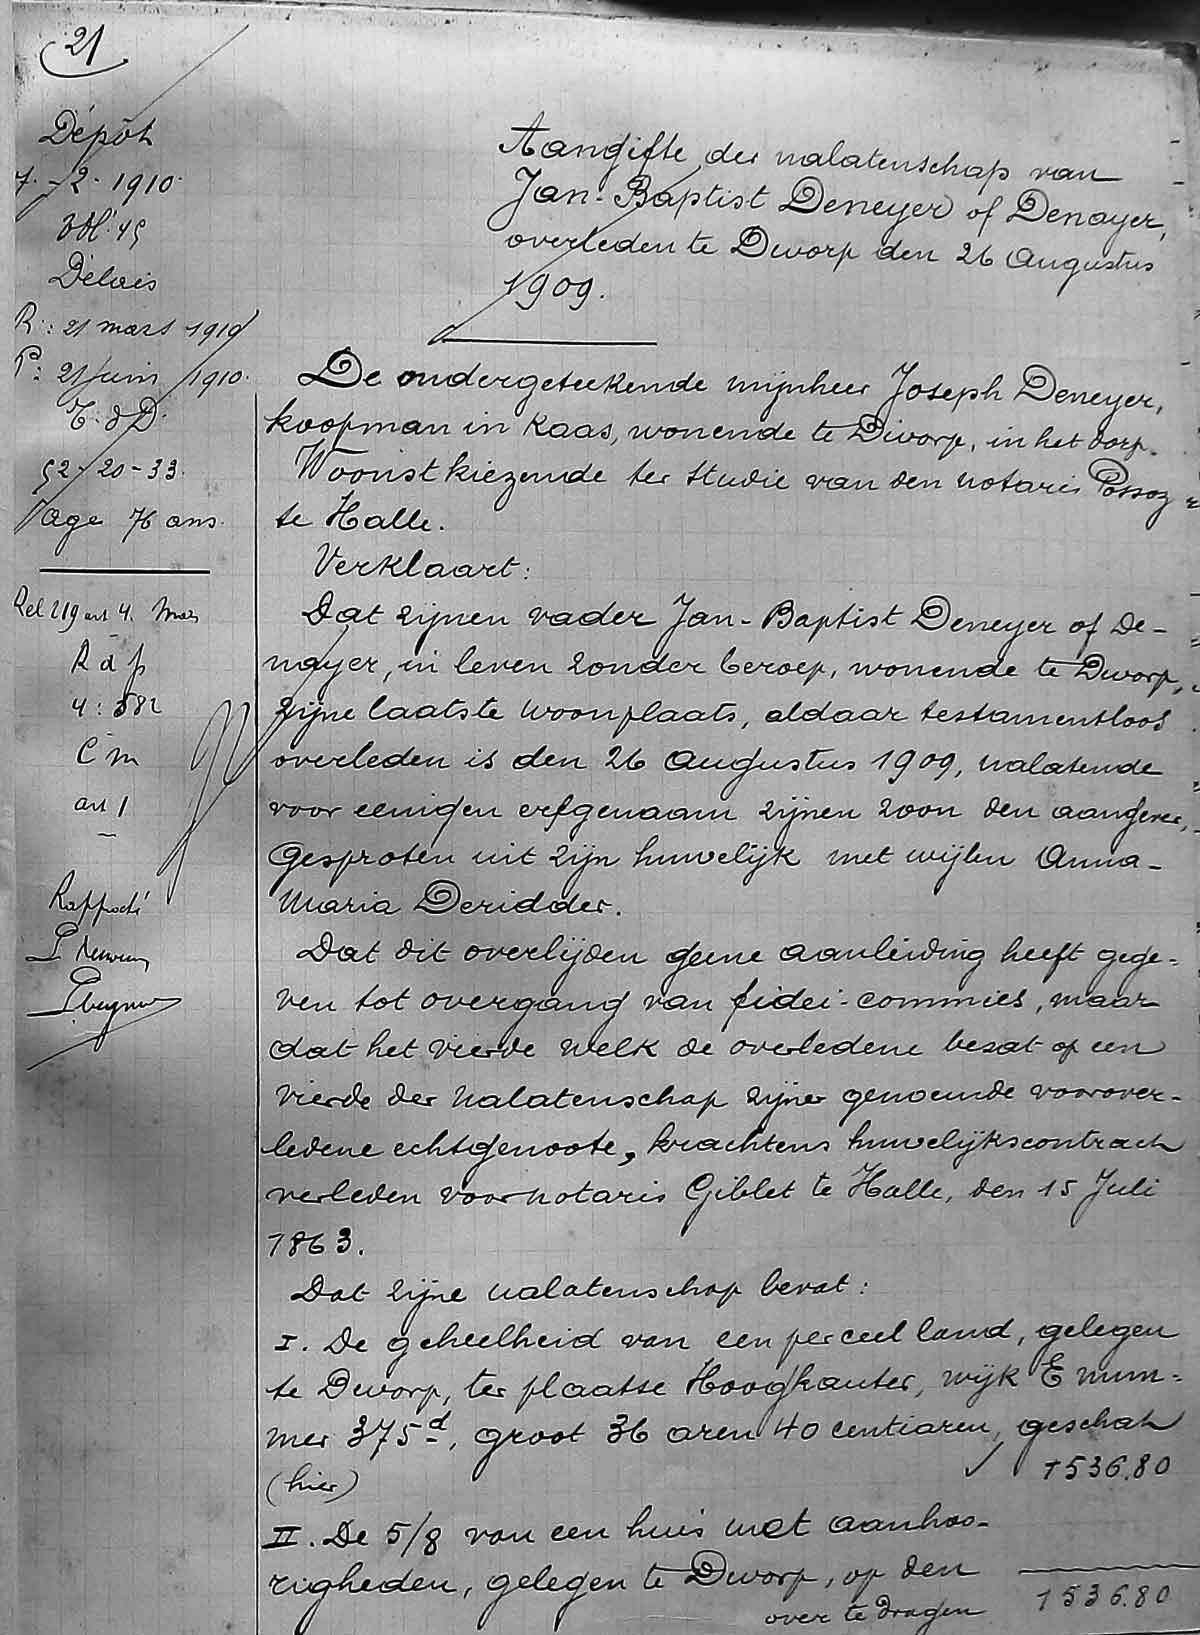 21
Dépôt
7-2-1910
Vol. 45
Délais
R: 21 mars 1910
P: 21 juin 1910
T. d D.
52-20-33
age 76 ans
Rel 219 art 4. Mos
R d p
4: 582
C m
art 1
Aangifte der nalatenschap van
Jan-Baptist Deneyer of Denayer,
overleden te Dworp den 26 Augustus
1909.
De ondergeteekende mijnheer Joseph Deneyer,
koopman in kaas, wonende te Dworp, in het dorp.
Woonst kiezende ter studie van den notaris Possoz
te Halle.
Verklaart:
Dat zijnen vader Jan-Baptist Deneyer of De-
nayer, in leven zonder beroep, wonende te Dworp,
zijne laatste woonplaats, aldaar testamentloos
overleden is den 26 Augustus 1909, nalatende
voor eenigen erfgenaam zijnen zoon den aangever,
gesproten uit zijn huwelijk met wijlen Anna-
Maria Deridder.
Dat dit overlijden geene aanleiding heeft gege-
ven tot overgang van fidei-commies, maar
dat het vierde welk de overledene bezat op een
vierde der nalatenschap zijner genoemde voorover-
ledene echtgenoote, krachtens huwelijkscontract
verleden voor notaris Giblet te Halle, den 15 Juli
1863.
Dat zijne nalatenschap bevat:
I. De geheelheid van een perceel land, gelegen
te Dworp, ter plaatse Hooghkauter, wijk E num-
mer 375d, groot 36 aren 40 centiaren, geschat
(hier) 1536.80
II. De 5/8 van een huis met aanhoo-
righeden, gelegen te Dworp, op den
over te dragen 1536.80